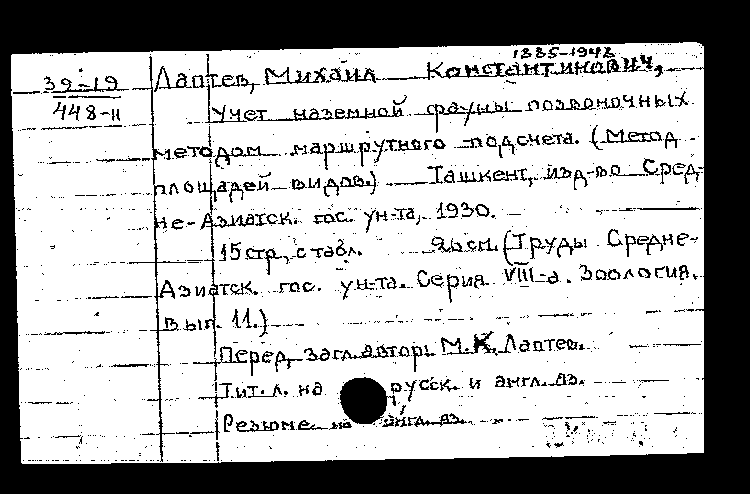 1885-1948
39-19
448-11
Лаптев, Михаил Константинович,
Учет наземной фауны позвоночных
методом маршрутного подсчета. (Метод
площадей видов.) Ташкент, изд-во Сред-
не-Азиатск. гос. ун-та, 1930.
15 стр., с табл. 26 см. (Труды Средне-
Азиатск. гос. ун-та. Серия VIII-а. Зоология.
Вып. 11.)
Перед загл. автор: М.К. Лаптев.
Тит. л. на русск. и англ. яз.
Резюме на англ. яз.